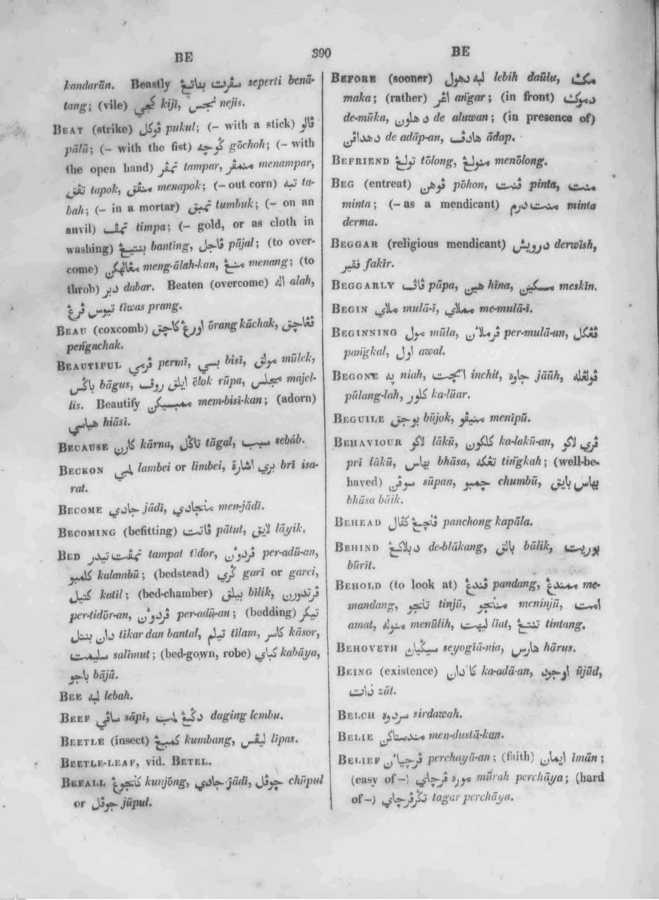 BE
390
BE
kandarān. Beastly بناتڠ سڤرت seperti benā-
tang; (vile) کجي kijī, نجس nejis.
BEAT (strike) ڤوکل pukul; (– with a stick) ڤالو
pālū; (– with the fist) ڬوچه gōchoh; (– with
the open hand) تمڤر tampar, منمڤر menampar,
تاڤق tapok, مناڤق menapok; (– out corn) تبه ta-
bah; (– in a mortar) تمبق tumbuk; (– on an
anvil) تمڤ timpa; (– gold, or as cloth in
washing) بنتيڠ banting, ڤاجل pājal; (to over-
come) مڠالهکن meng-ālah-kan, منڠ menang; (to
throb) دبر dabar. Beaten (overcome) اله alah,
تيوس ڤرڠ tīwas prang.
BEAU (coxcomb) اورڠ کاچق ōrang kāchak, ڤڠاچق
pengachak.
BEAUTIFUL ڤرمي permī, بسي bisī, مولق mūlek,
باڬس bāgus, ايلق روڤ ēlok rūpa, مجلس majel-
lis. Beautify ممبسيکن mem-bisī-kan; (adorn)
هياسي hiāsī.
BECAUSE کارن kārna, تاڬل tāgal, سبب sebāb.
BECKON لمبي lambei or limbei, بري اشارة brī isa-
rat.
BECOME جادي jādī, منجادي men-jādī.
BECOMING (befitting) ڤاتت pātut, لايق lāyik.
BED تمڤت تيدر tampat tīdor, ڤردوان per-adū-an,
کلمبو kalambū; (bedstead) ڬري garī or gareī,
کتيل katil; (bed-chamber) بيلق bīlik, ڤرتدورن
per-tidōr-an, ڤردوان per-adū-an; (bedding) تيکر
دان بنتل tīkar dan bantal, تيلم tīlam, کاسر kāsor,
سليمت salīmut; (bed-gown, robe) کباي kabāya,
باجو bājū.
BEE لبه lebah.
BEEF ساڤي sāpī, داڬڠ لمبو daging lembu.
BEETLE (insect) کمبڠ kumbang, ليڤس līpas.
BEETLE-LEAF, vid. BETEL.
BEFALL کنجوڠ kunjōng, جادي jādī, چوڤل chūpul
or جوڤل jūpul.
BEFORE (sooner) لبه دهول lebih daūlu, مک
maka; (rather) اڠر angar; (in front) دموک
de-mūka, دهلون de aluwan; (in presence of)
دهداڤن de adāp-an, هادڤ ādap.
BEFRIEND تولڠ tōlong, منولڠ menōlong.
BEG (entreat) ڤوهن pōhon, ڤنت pinta, منت
minta; (– as a mendicant) منت درم minta
derma.
BEGGAR (religious mendicant) درويش derwīsh,
فقير fakīr.
BEGGARLY ڤاڤ pāpa, هين hīna, مسکين meskīn.
BEGIN ملاي mulā-ī, مملاي me-mulā-ī.
BEGINNING مول mūla, ڤرملان per-mulā-an, ڤڠکل
pangkal, اول awal.
BEGONE نيه niah, اينچت inchit, جاوه jāūh, ڤولڠله
pūlang-lah, کلور ka-lūar.
BEGUILE بوجق būjok, منيڤو menīpū.
BEHAVIOUR لاکو lākū, کلاکون ka-lakū-an, ڤري لاکو
prī lākū, بهاس bhāsa, تڠکه tingkah; (well-be-
haved) سوڤن sūpan, چمبو chumbū, بهاس بايق
bhāsa bāik.
BEHEAD ڤنچڠ کڤال panchong kapāla.
BEHIND دبلاکڠ de-blākang, بالق bālik, بوريت
būrīt.
BEHOLD (to look at) ڤندڠ pandang, ممندڠ me-
mandang, تنجو tinjū, مننجو meninjū, امت
amat, منوله menūlih, ليهت līat, تنتڠ tintang.
BEHOVETH سيڬيان seyogiā-nia, هارس hārus.
BEING (existence) کادان ka-adā-an, اوجود ūjūd,
ذات zāt.
BELCH سرداوه sirdawah.
BELIE مندستاکن men-dustā-kan.
BELIEF ڤرچيان perchayā-an; (faith) ايمان īmān;
(easy of –) موره ڤرچاي mūrah perchāya; (hard
of –) تڬر ڤرچاي tagar perchāya.